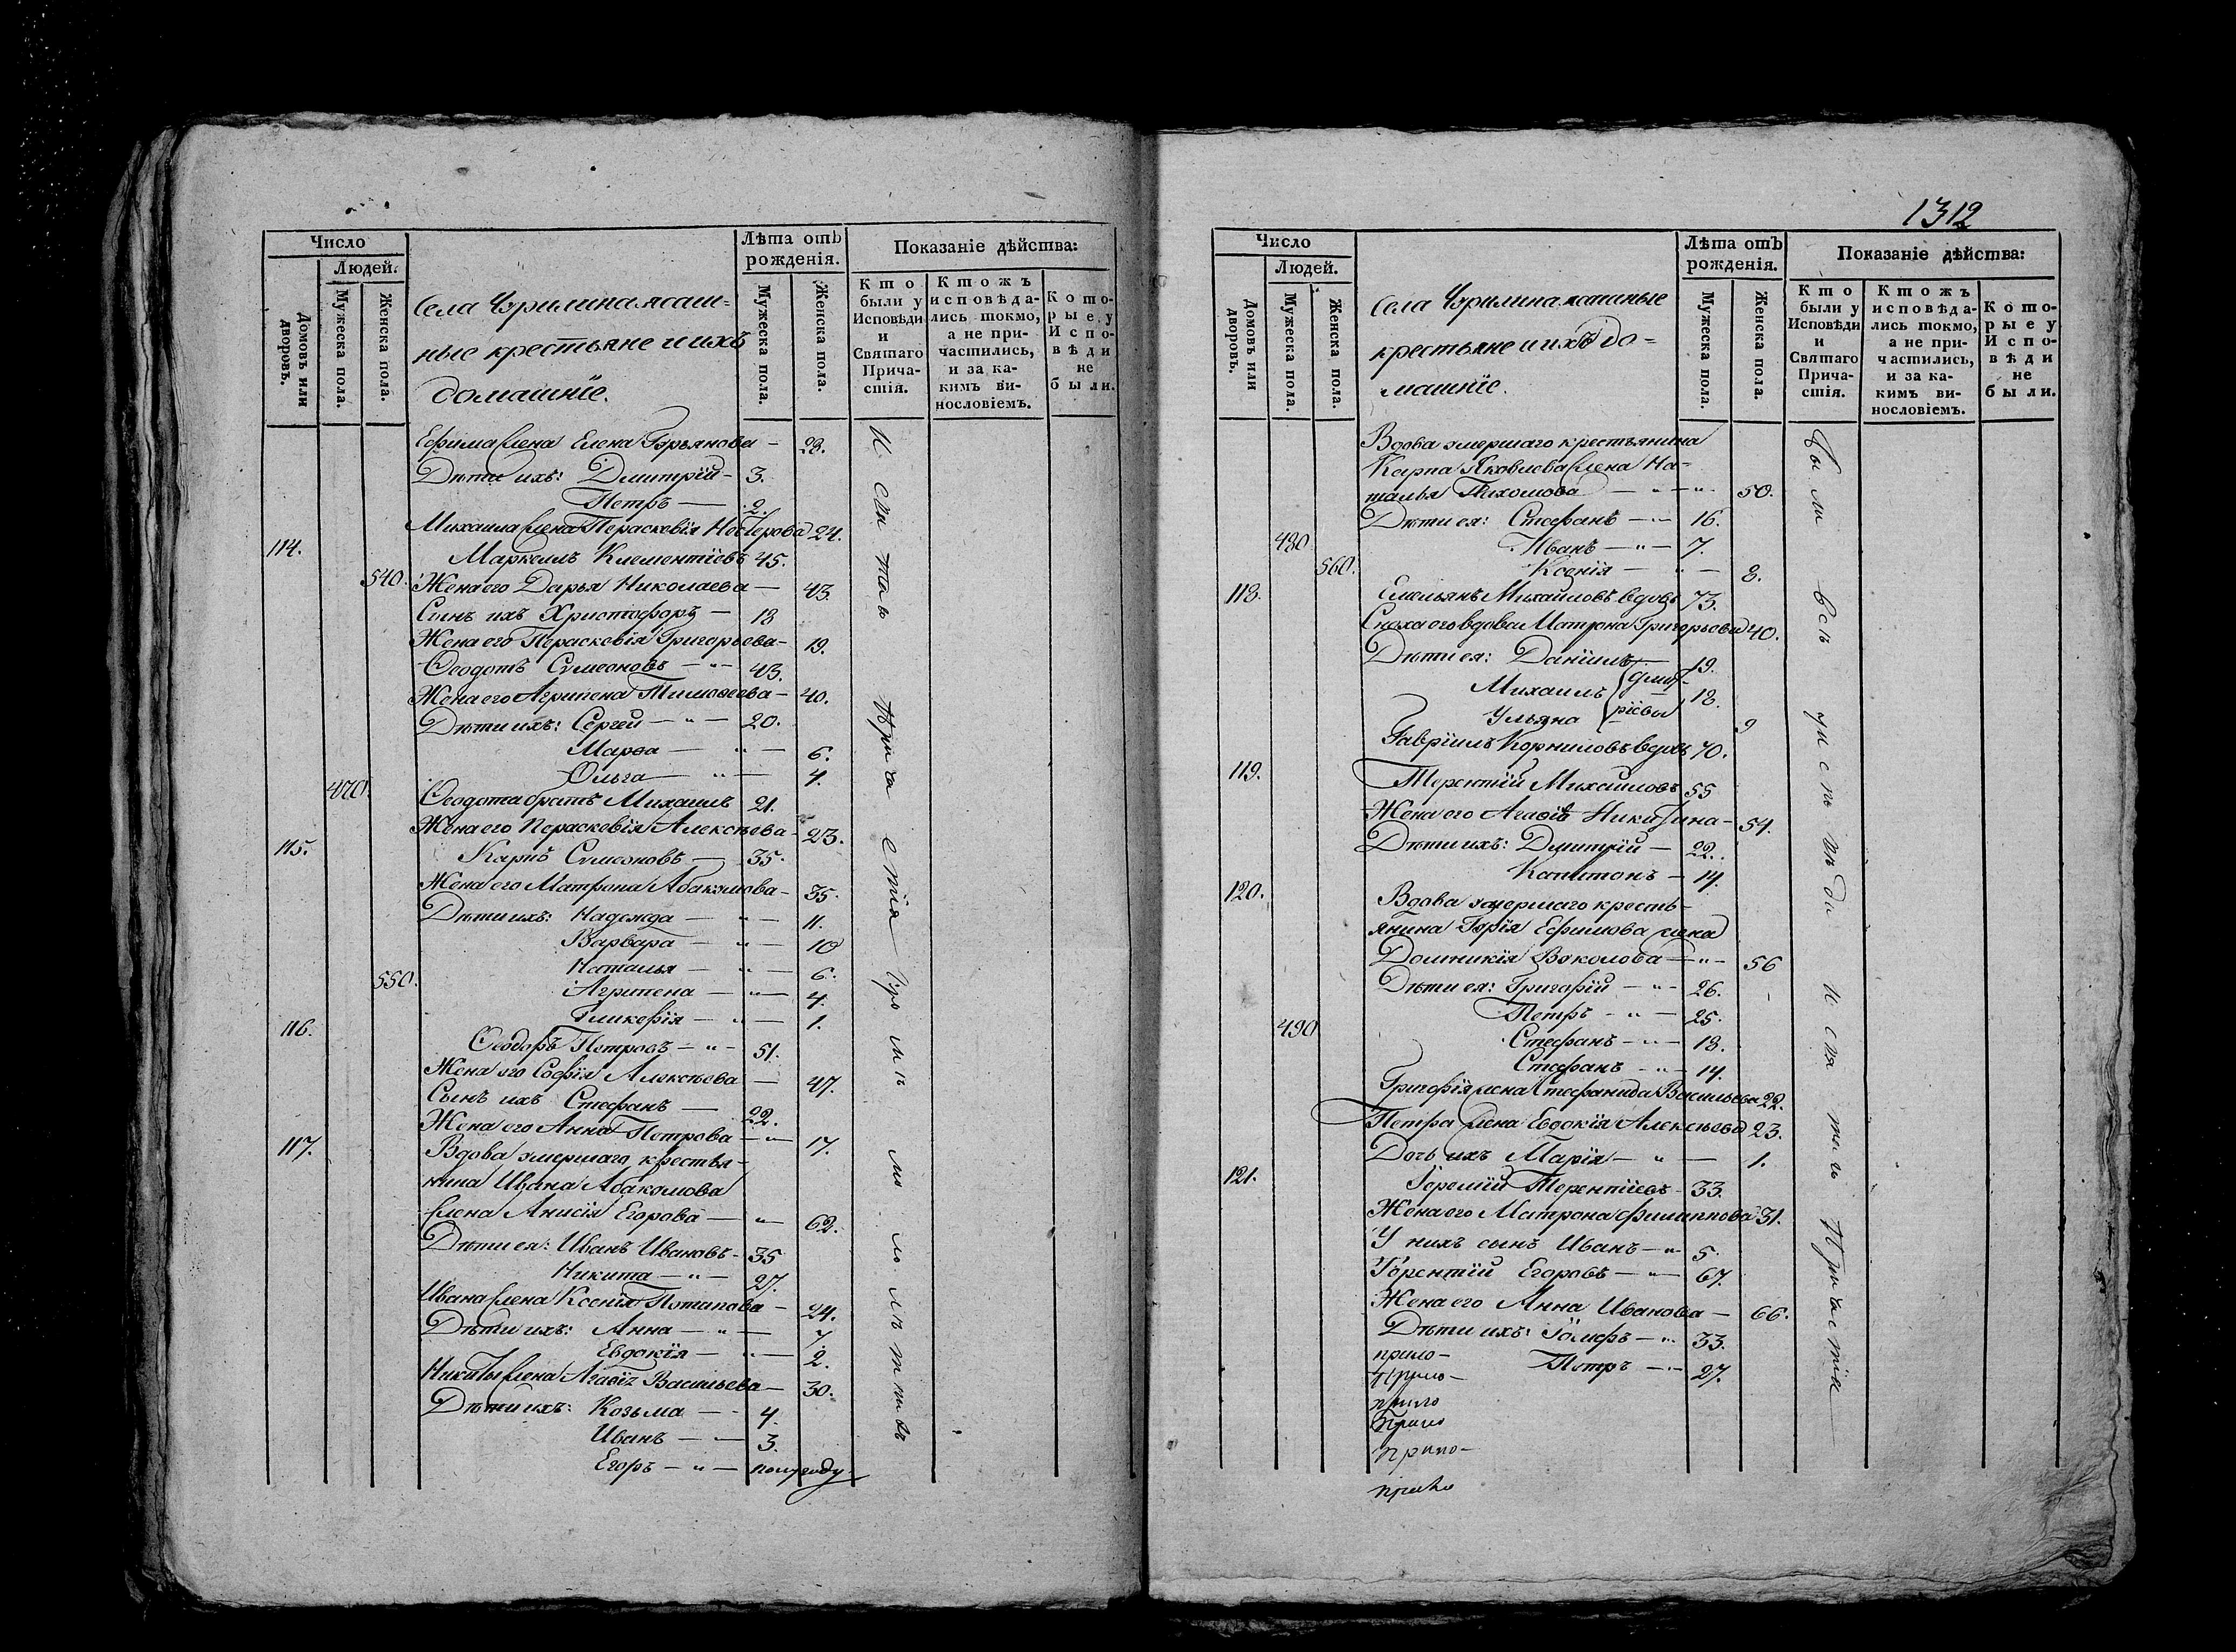 Число
Людей.
Домовъ или дворовъ.
Мужеска пола.
Женска пола.
Села Чурилина ясаш=
ные крестьяне и ихъ
домашнїе.
Лѣта отъ рожденія.
Мужеска пола.
Женска пола.
Показаніе дѣйства:
Кто были у Исповѣди и Святаго Прича-стія.
Ктожъ исповѣда-лись токмо, а не при-частились, и за ка-кимъ ви-нословіемъ.
Кото-рые у Испо-вѣди не были.
Ефима жена Елена Гурьянова — 28.
Дѣти ихъ: Дмитрїй — 3.
Петръ — 2.
Михаила жена Параскевїя 24.
114. Маркеллъ Клементїевъ 45.
540. Жена его Дарья Николаева — 43.
Сынъ ихъ Христофоръ — 18
Жена его Пераскевїя Григорьева — 19.
Ѳеодотъ Сумеоновъ — " — 43.
Жена его Агрипена Тимоѳеева — 40.
Дѣти ихъ: Сергей — " — 20.
Марѳа — " — 6.
Ольга — " — 4.
470. Ѳеодота братъ Михаилъ 21.
Жена его Пераскевїя Алексѣева — 23.
115. Карпъ Сумеоновъ — 35.
Жена его Матрона Абакумова — 35.
Дѣти ихъ: Надежда — " — 11.
Варвара — " — 10
Наталья — " — 6.
550. Агрипена — " — 4.
Гликерїя — " — 1.
116. Ѳеодоръ Петровъ — " — 51.
Жена его Софїя Алексѣева — 47.
Сынъ ихъ Стефанъ — 22.
Жена его Анна Петрова — " — 17.
117. Вдова умершаго крестья-
нина Ивана Абакумова
жена Анисїя Егорова — " — 62.
Дѣти ея: Иванъ Ивановъ — 35
Никита — " — 27.
Ивана жена Ксенїя Потапова — 24.
Дѣти ихъ: Анна — " — 7.
Евдокїя — " — 2.
Никиты жена Агаѳїя Васильева — 30.
Дѣти ихъ: Козьма — 4.
Иванъ — " — 3.
Егоръ — " — полугоду
1312
Число
Людей.
Домовъ или дворовъ.
Мужеска пола.
Женска пола.
Села Чурилина ясашные
крестьяне и ихъ до=
машнїе.
Лѣта отъ рожденія.
Мужеска пола.
Женска пола.
Показаніе дѣйства:
Кто были у Исповѣди и Святаго Прича-стія.
Ктожъ исповѣда-лись токмо, а не при-частились, и за ка-кимъ ви-нословіемъ.
Кото-рые у Испо-вѣди не были.
Вдова умершаго крестьянина
Карпа Яковлева жена На-
талья — " — " 50.
Дѣти ея: Стефанъ — " — 16.
480 Иванъ — " — 7.
560. Ксенїя — " — 8.
118. Емельянъ Михайловъ вдовъ 73.
Сноха его вдова Матрона Григорьева 40.
Дѣти ея: Данїилъ — 19.
Михаилъ Дмит- 18.
Ульяна рїевы 9
Гаврїилъ Корниловъ вдовъ 70.
119. Терентїй Михаиловъ 55
Жена его Агаѳїя Никитина — 54.
Дѣти ихъ: Дмитрїй — 22.
Капитонъ — 14.
120. Вдова умершаго кресть-
янина Гурїя Ефимова жена
Домникїя — " — 56
Дѣти ея: Григорїй — " — 26.
Петръ — " — 25.
490 Стефанъ — " — 18.
Стефанъ — " — 14.
Григорїя жена Стефанида Васильева 22.
Петра жена Евдокїя Алексѣева 23.
Дочь ихъ Марїя — " — 1.
121. Терентїевъ — 33.
Жена его Матрона Филиппова 31.
У нихъ сынъ Иванъ — " — 5.
Егоровъ — " — 67.
Жена его Анна Иванова — 66.
Дѣти ихъ: — " 33.
Петръ — " — 27.